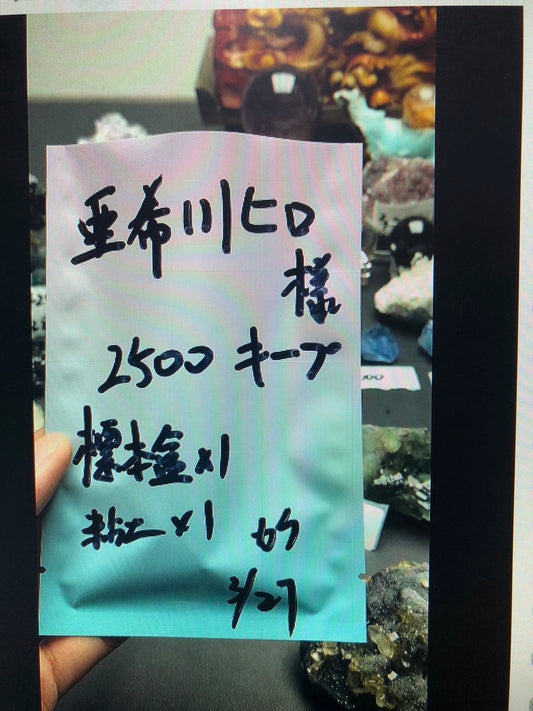 亜希川ヒロ
様
2500 キープ
標本盒×1
粘土×1
3/27